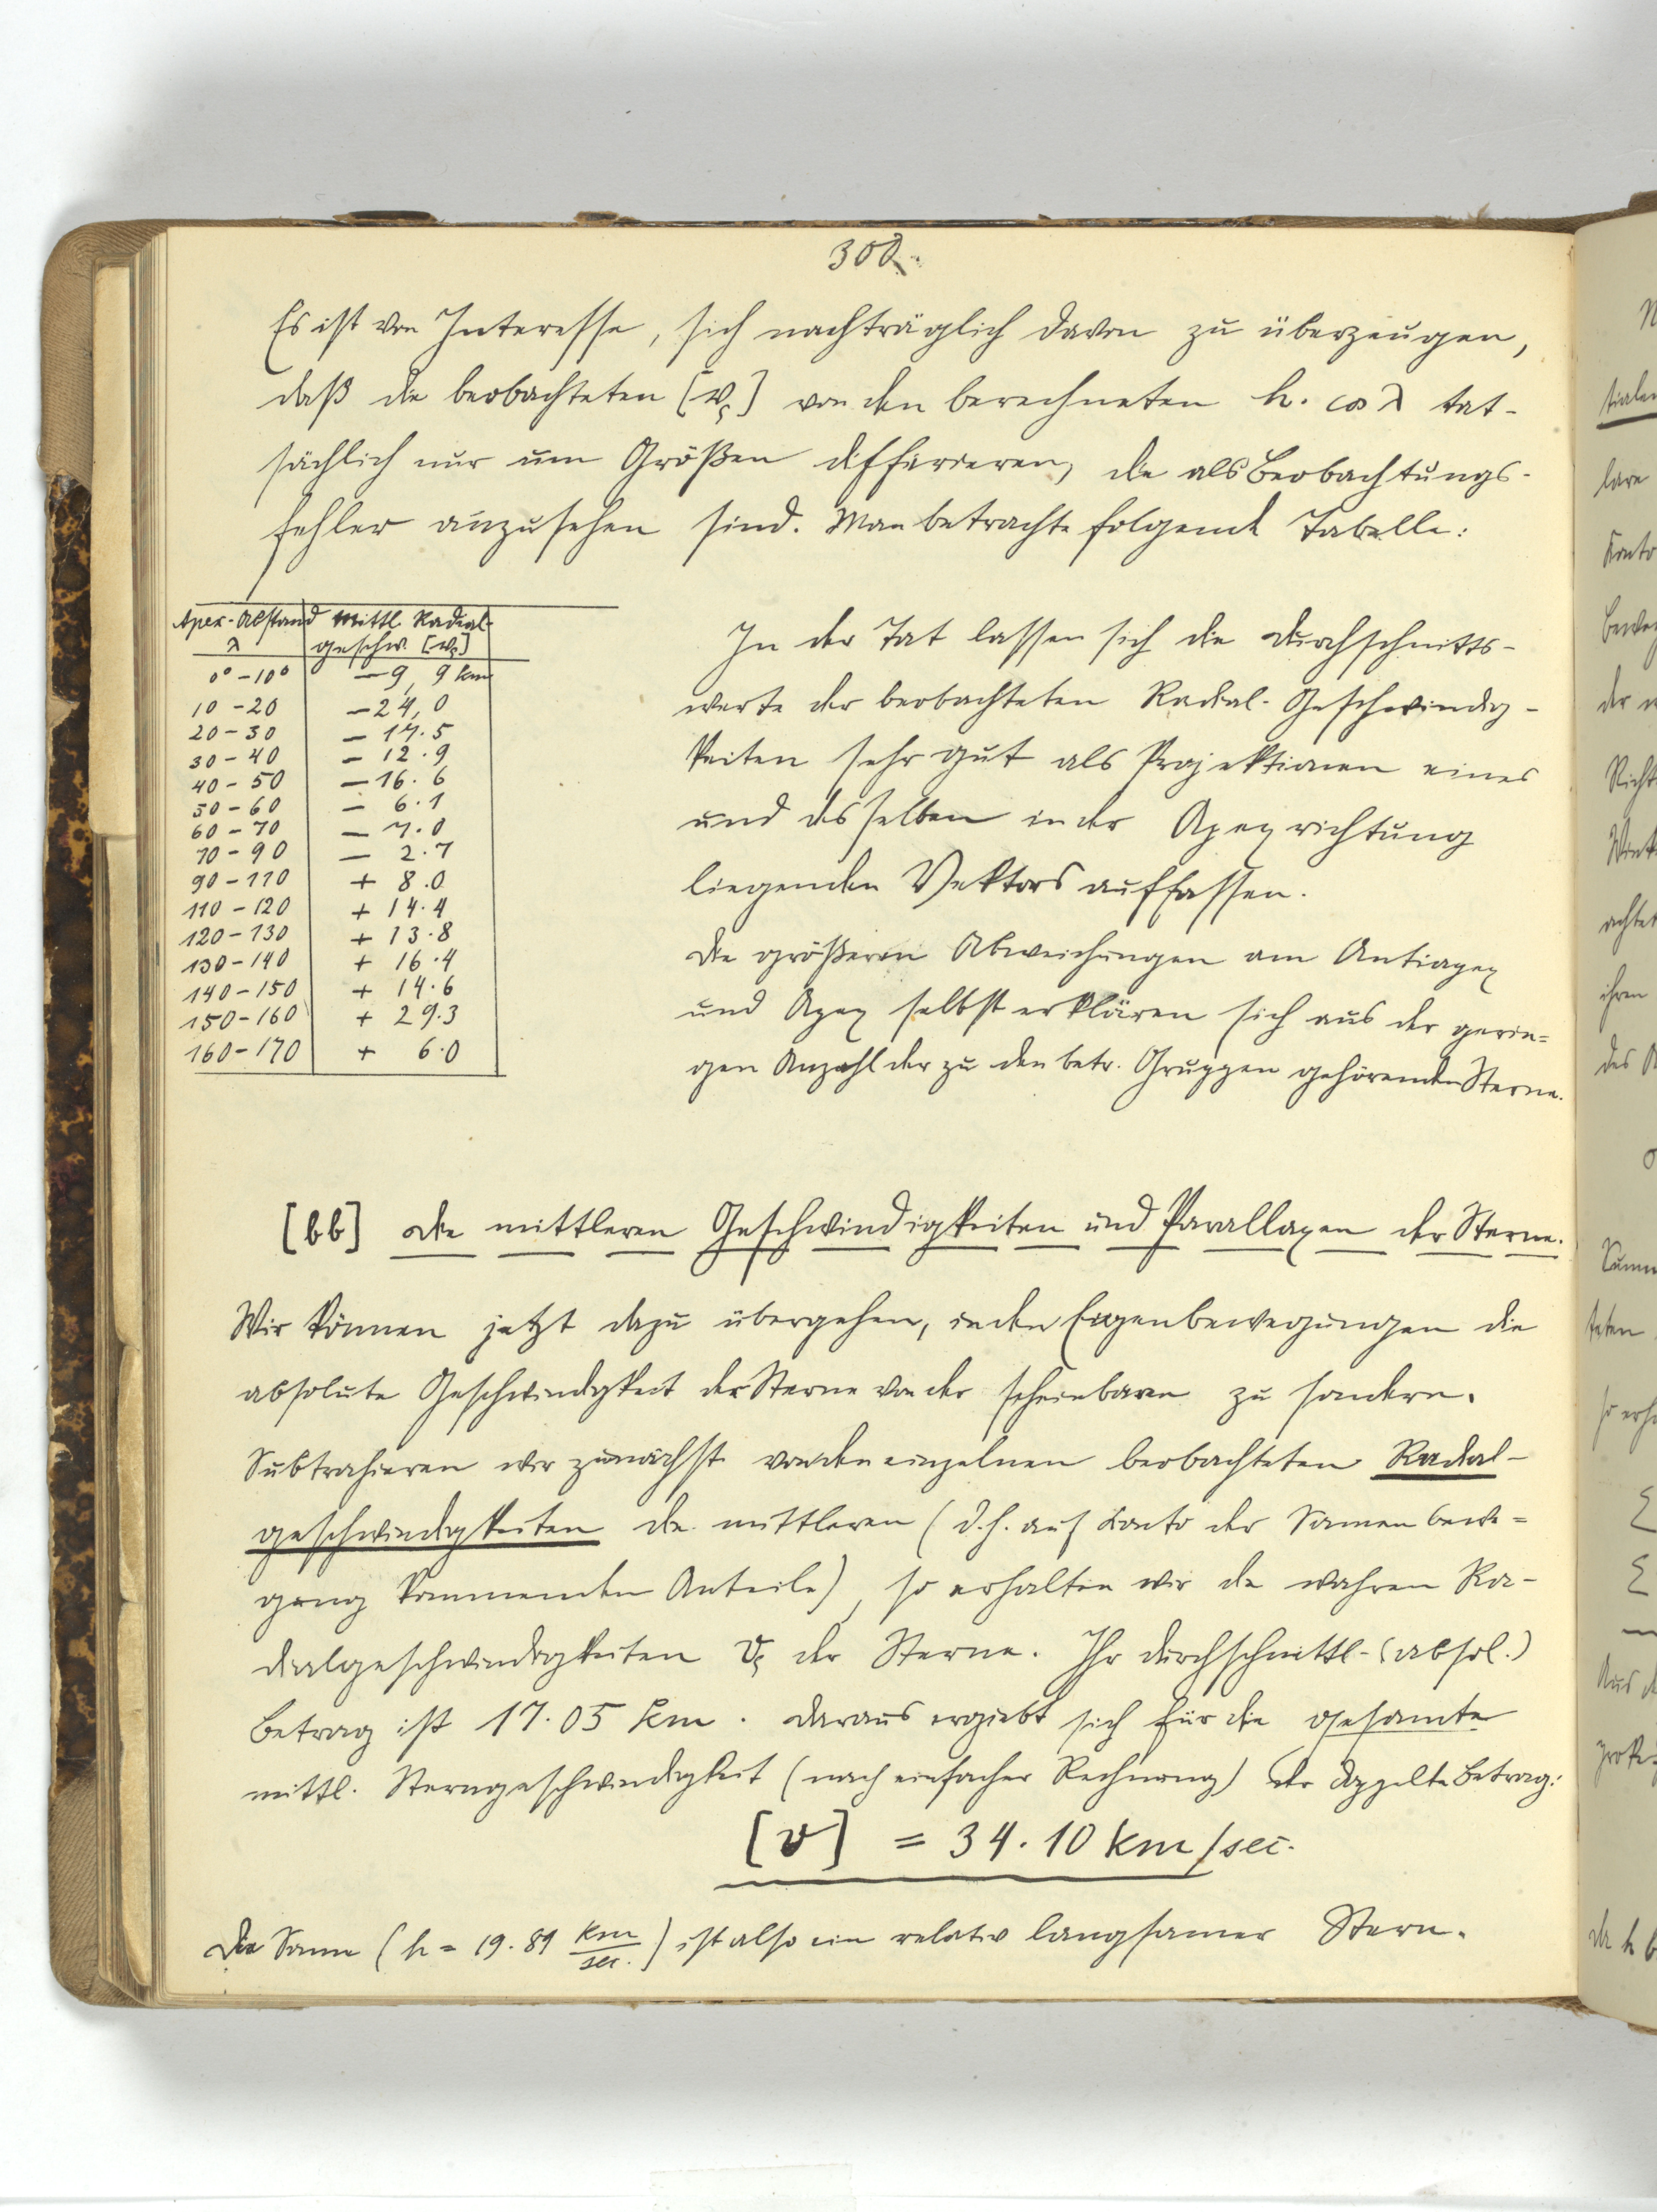 300.
Es ist von Interesse, sich nachträglich davon zu überzeugen,
daß die beobachteten [vς] von den berechneten h. cos λ tat-
sächlich nur um Größen differieren, die als Beobachtungs-
fehler anzusehen sind. Man betrachte folgende Tabelle:
Apex-Abstand λ | Mittl. Radial-geschw. [vς]
0° - 10° | - 9, 9 km
10 - 20 | - 24, 0
20 - 30 | - 17.5
30 - 40 | - 12.9
40 - 50 | - 16.6
50 - 60 | - 6.1
60 - 70 | - 7.0
70 - 90 | - 2.7
90 - 110 | + 8.0
110 - 120 | + 14.4
120 - 130 | + 13.8
130 - 140 | + 16.4
140 - 150 | + 14.6
150 - 160 | + 29.3
160 - 170 | + 6.0
In der Tat lassen sich die Durchschnitts-
werte der beobachteten Radial-Geschwindig-
keiten sehr gut als Projektionen eines
und desselben in der Apexrichtung
liegenden Vektors auffassen.
Die größeren Abweichungen am Antiapex
und Apex selbst erklären sich aus der gerin=
gen Anzahl der zu den betr. Gruppen gehörenden Sterne.
[bb] Die mittleren Geschwindigkeiten und Parallaxen der Sterne.
Wir können jetzt dazu übergehen, in den Eigenbewegungen die
absolute Geschwindigkeit der Sterne von der scheinbaren zu sondern.
Subtrahieren wir zunächst von den einzelnen beobachteten Radial-
geschwindigkeiten die mittleren (d.h. auf Konto der Sonnenbewe=
gung kommenden Anteile), so erhalten wir die wahren Ra-
dialgeschwindigkeiten vς der Sterne. Ihr durchschnittl. (absol.)
Betrag ist 17.05 km. Daraus ergiebt sich für die gesamte
mittl. Sterngeschwindigkeit (nach einfacher Rechnung) der doppelte Betrag:
[v] = 34.10 km/sec.
Die Sonne (h = 19.89 km/sec.) ist also ein relativ langsamer Stern.